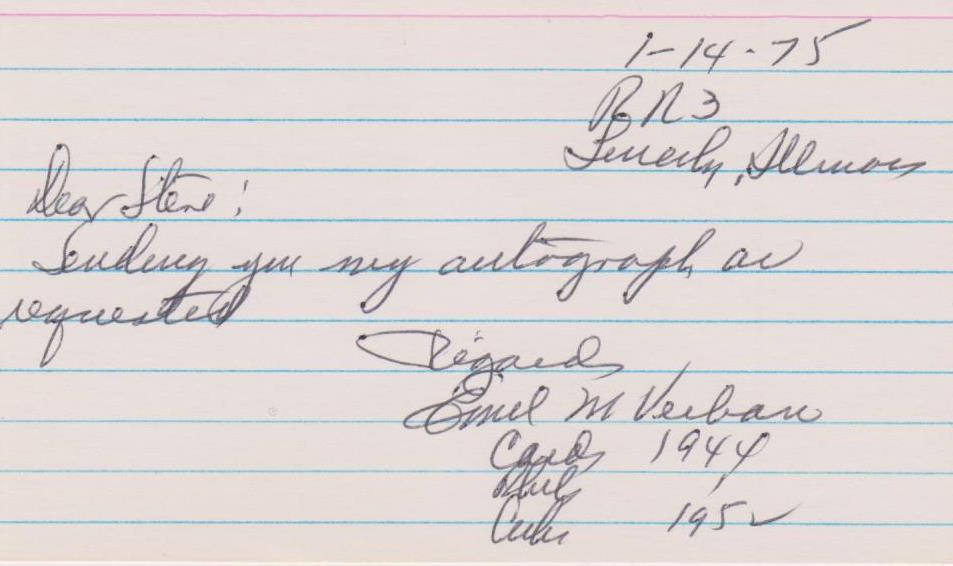 1-14-75
R R 3
Lincoln, Illinois
Dear Steve:
Sending you my autograph as
requested
Regards
Emil M Verban
Cards 1944
Phils
Cubs 1950